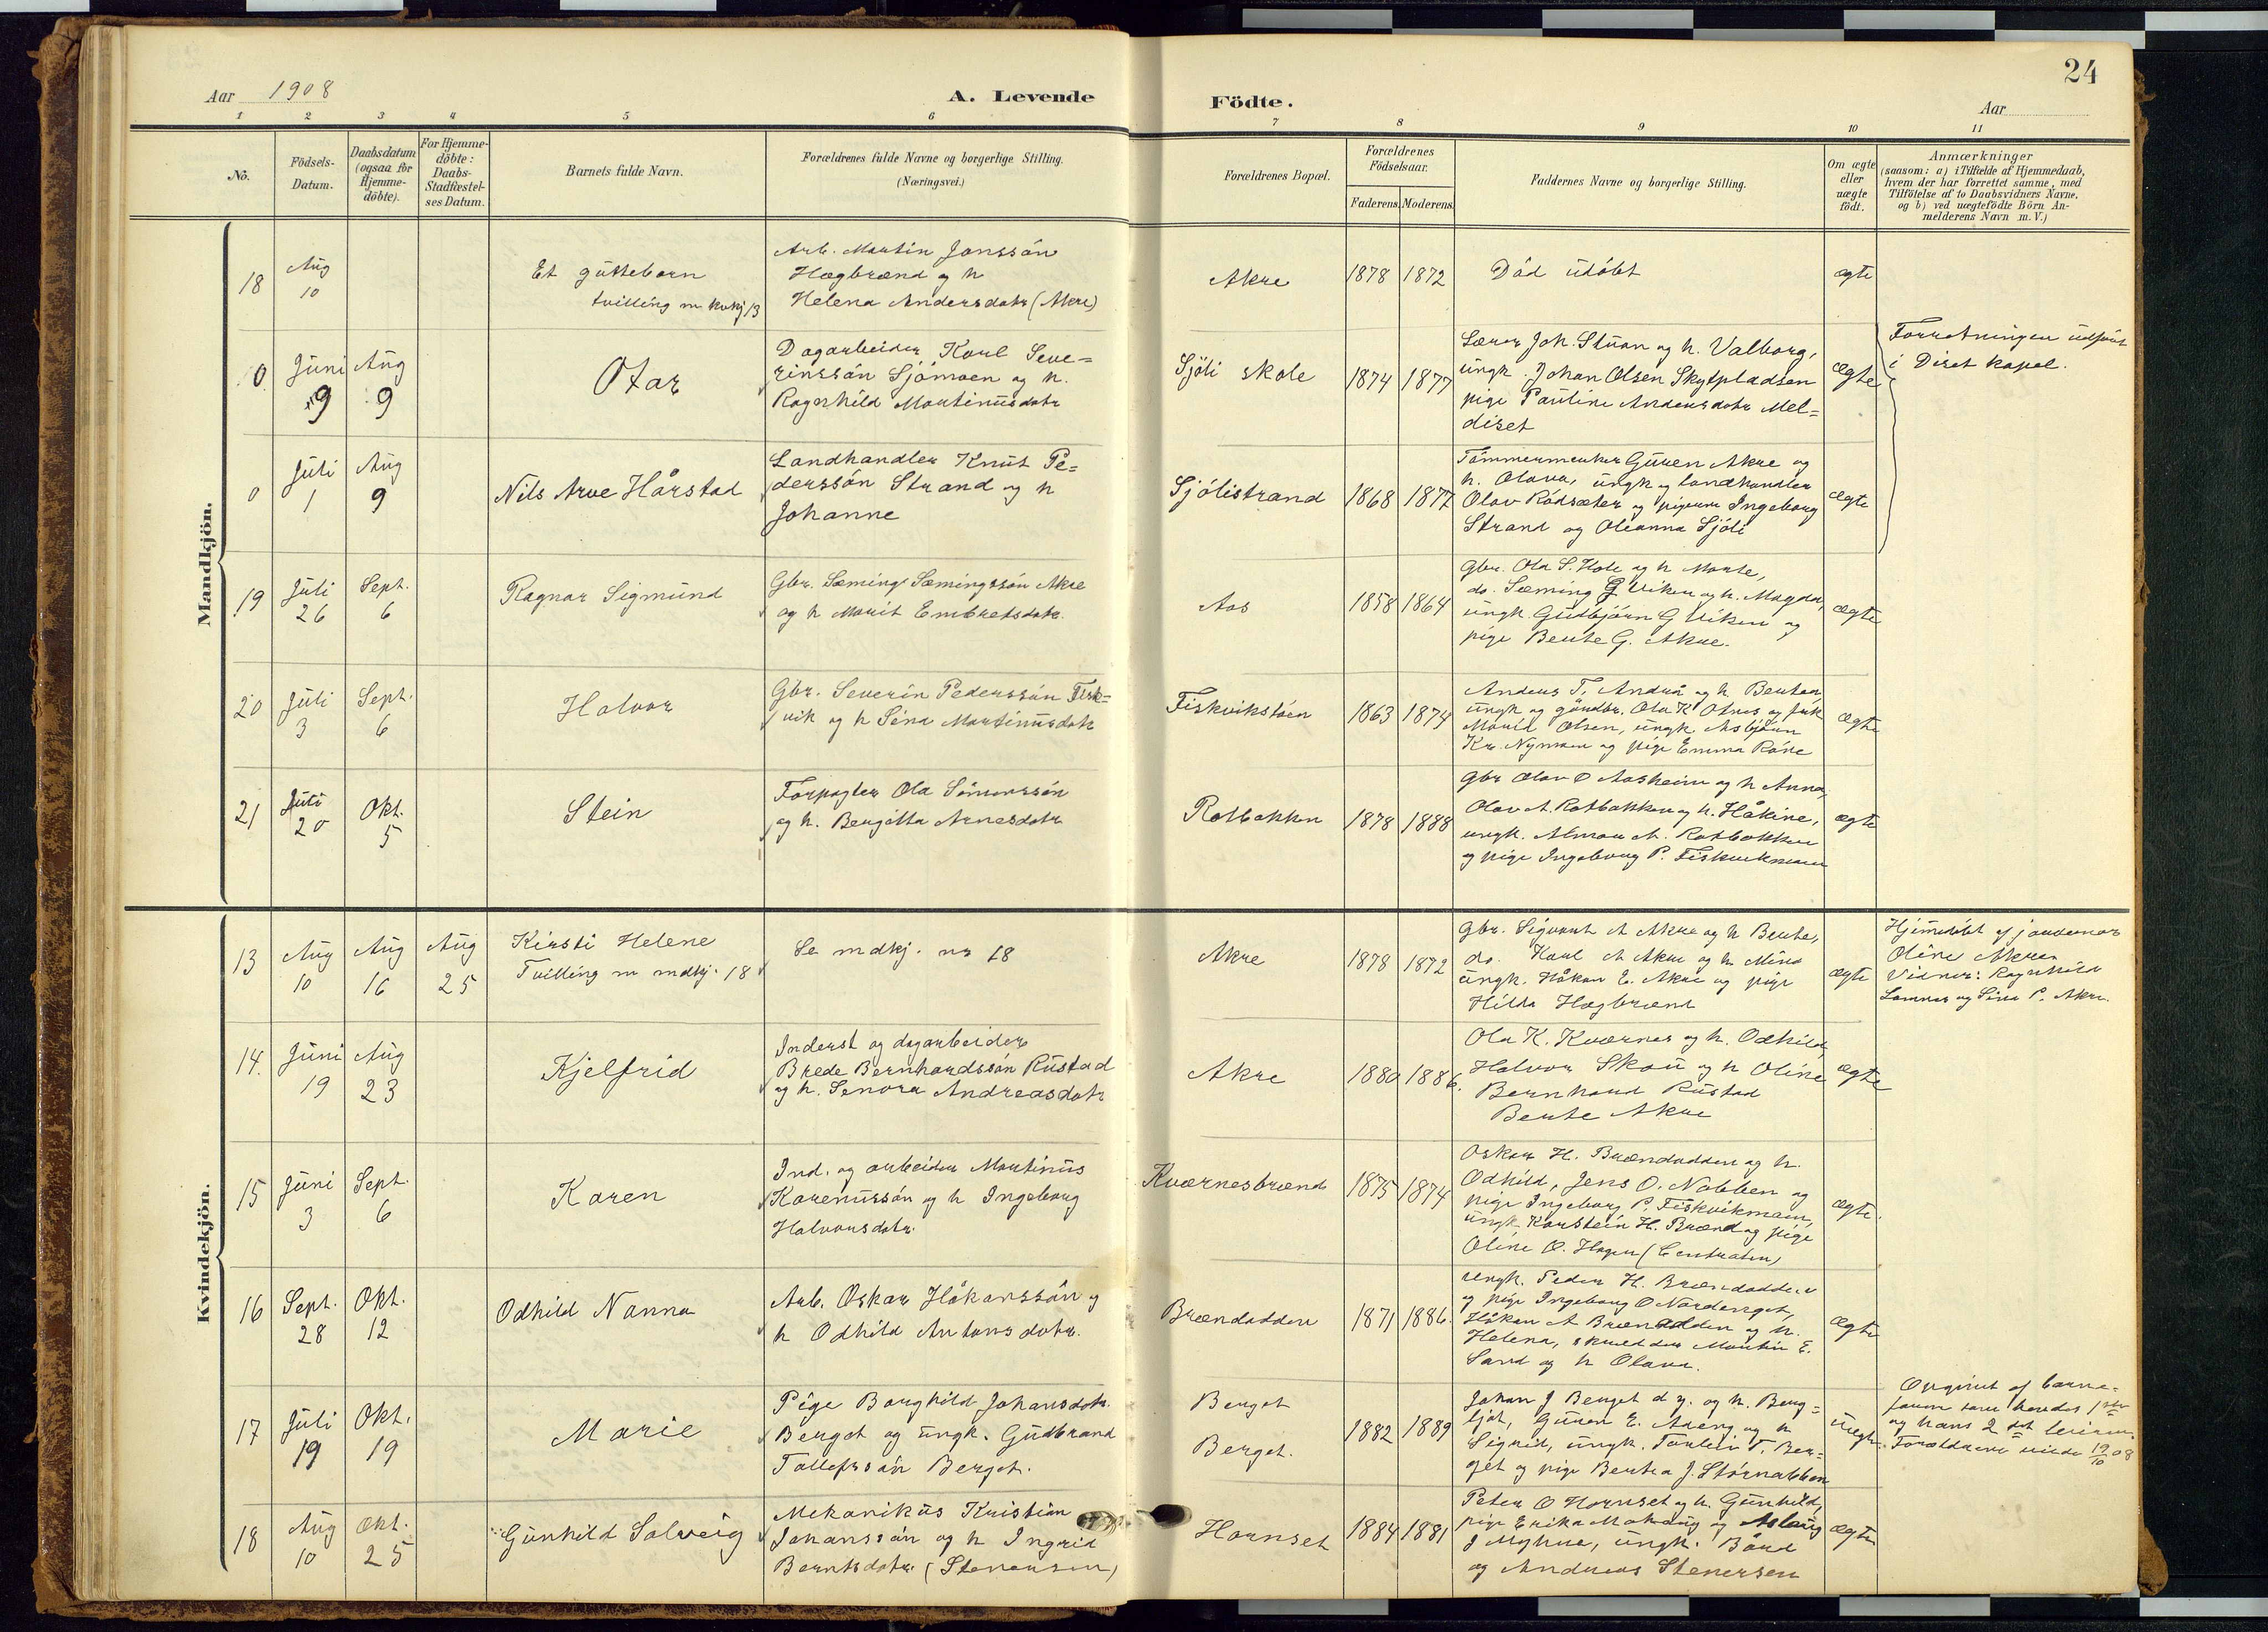 24
Aar 1908
A. Levende
Födte.
Aar
1 2 3 4 5 6 7 8 9 10 11
No.
Födsels-
Datum.
Daabsdatum
(ogsaa för
Hjemme-
döbte).
For Hjemme-
döbte:
Daabs-
Stadfæstel-
ses Datum.
Barnets fulde Navn.
Forældrenes fulde Navne og borgerlige Stilling.
(Næringsvei.)
Forældrenes Bopæl.
Forældrenes
Födselsaar.
Faderens. Moderens.
Faddernes Navne og borgerlige Stilling.
Om ægte
eller
uægte
födt.
Anmærkninger
(saasom: a) i Tilfælde af Hjemmedaab,
hvem der har forrettet samme, med
Tilföielse af to Daabsvidners Navne,
og b) ved uægtefödte Börn An-
melderens Navn m. V.)
Mandkjön.
18
Aug
10
Et guttebarn
tvilling m kvkj 13
Arb. Martin Janssön
Hagbrænd og h
Helena Andersdatr (Akre)
Akre
1878 1872
Död udöbt
ægte
0
Juni Aug
9 9
Otar
Dagarbeider Karl Seve=
rinssön Sjömoen og h.
Ragnhild Martinusdatr
Sjöli skole
1874 1877
Lærer Joh. Stuan og h. Valborg,
ungk. Johan Olsen Skytpladsen
pige Pauline Andersdatr Mel=
diset
ægte
Forretningen udfört
i Diset kapel.
0
Juli Aug
1 9
Nils Arve Hårstad
Landhandler Knut Pe=
derssön Strand og h
Johanne
Sjölistrand
1868 1877
Tömmermerker Guren Akre og
h. Olava, ungk og landhandler
Olav Rödsæter og pigerne Ingeborg
Strand og Oleanna Sjöli
ægte
19
Juli Sept.
26 6
Ragnar Sigmund
Gbr. Sæming Sæmingssön Akre
og h Marit Embretsdatr.
Aas
1858 1864
Gbr. Ola S. Hole og h Marte,
do. Sæming G Viken og h. Magda,
ungk. Gudbjörn G Viken og
pige Beate G. Akre.
ægte
20
Juli Sept.
3 6
Halvor
Gbr. Severin Pederssön Fisk=
vik og h Sina Martinusdatr
Fiskvikstöen
1863 1874
Anders T. Andrå og h. Bertea,
ungk og gårdbr. Ola K Otnes og frk
Marid Olsen, ungk Asbjörn
Kr. Nyman og pige Emma Röne
ægte
21
Juli Okt.
20 5
Stein
Forpagter Ola Simonssön
og h. Bergitta Arnesdatr
Rotbakken
1878 1888
Gbr Olav O Aasheim og h Anna,
Olav A. Rotbakken og h. Håkine,
ungk. Alman A. Rotbakken
og pige Ingeborg P. Fiskvikmoen
ægte
Kvindekjön.
13
Aug Aug Aug
10 16 25
Kirsti Helene
Tvilling m mdkj. 18
Se mdkj. nr 18
Akre
1878 1872
Gbr. Sigvart A Akre og h Beate,
do. Karl A Akre og h. Mina
ungk. Håkon E. Akre og pige
Hilda Hagbrænd
ægte
Hjemmedöbt af jordemor
Oline Akre.
Vidner: Ragnhild
Lomnes og Sina P. Akre.
14.
Juni Aug
19 23
Kjelfrid
Inderst og dagarbeider
Brede Bernhardssön Rustad
og h. Senora Andreasdatr
Akre
1880 1886.
Ola K. Kværnes og h. Odhild,
Halvor Skau og h Oline
Bernhard Rustad
Beate Akre
ægte
15
Juni Sept.
3 6
Karen
Ind. og arbeider Martinus
Karenussön og h Ingeborg
Halvorsdatr.
Kværnesbrænd
1875 1874
Oskar H. Brændodden og h.
Odhild, Jens O. Nabben og
pige Ingeborg P. Fiskvikmoen,
ungk Karstein H. Brænd og pige
Oline O. Hagen (Centralen)
ægte.
16
Sept. Okt.
28 12
Odhild Nanna
Arb. Oskar Håkanssön og
h Odhild Antonsdatr.
Brændodden
1871 1886.
ungk. Peder H. Brændodden
og pige Ingeborg O Norderget,
Håkon A Brændodden og h.
Helena, skrædder Martin E.
Sand og h Olava.
ægte
17
Juli Okt.
19 19
Marie
Pige Borghild Johansdatr.
Berget og ungk. Gudbrand
Tollefssön Berget.
Berget
Berget.
1882 1889
Johan J Berget d y. og h. Berg=
ljot, Guren E. Aaeng og h
Sigrid, ungk. Torleiv T. Ber=
get og pige Bertea J. Störnabben
uægte.
Opgivet af barne-
faren som hendes 1ste
og hans 2det leierm.
Forældrene viede 19/10 08
18
Aug Okt.
10 25
Gunhild Solveig
Mekanikus Kristian
Johanssön og h Ingrid
Berntsdatr. (Stenersen)
Hornset
1884 1881
Peter O Hornset og h. Gunhild,
pige Erika Mohaug og Aslaug
J Myhre, ungk. Bård
og Andreas Stenersen
ægte